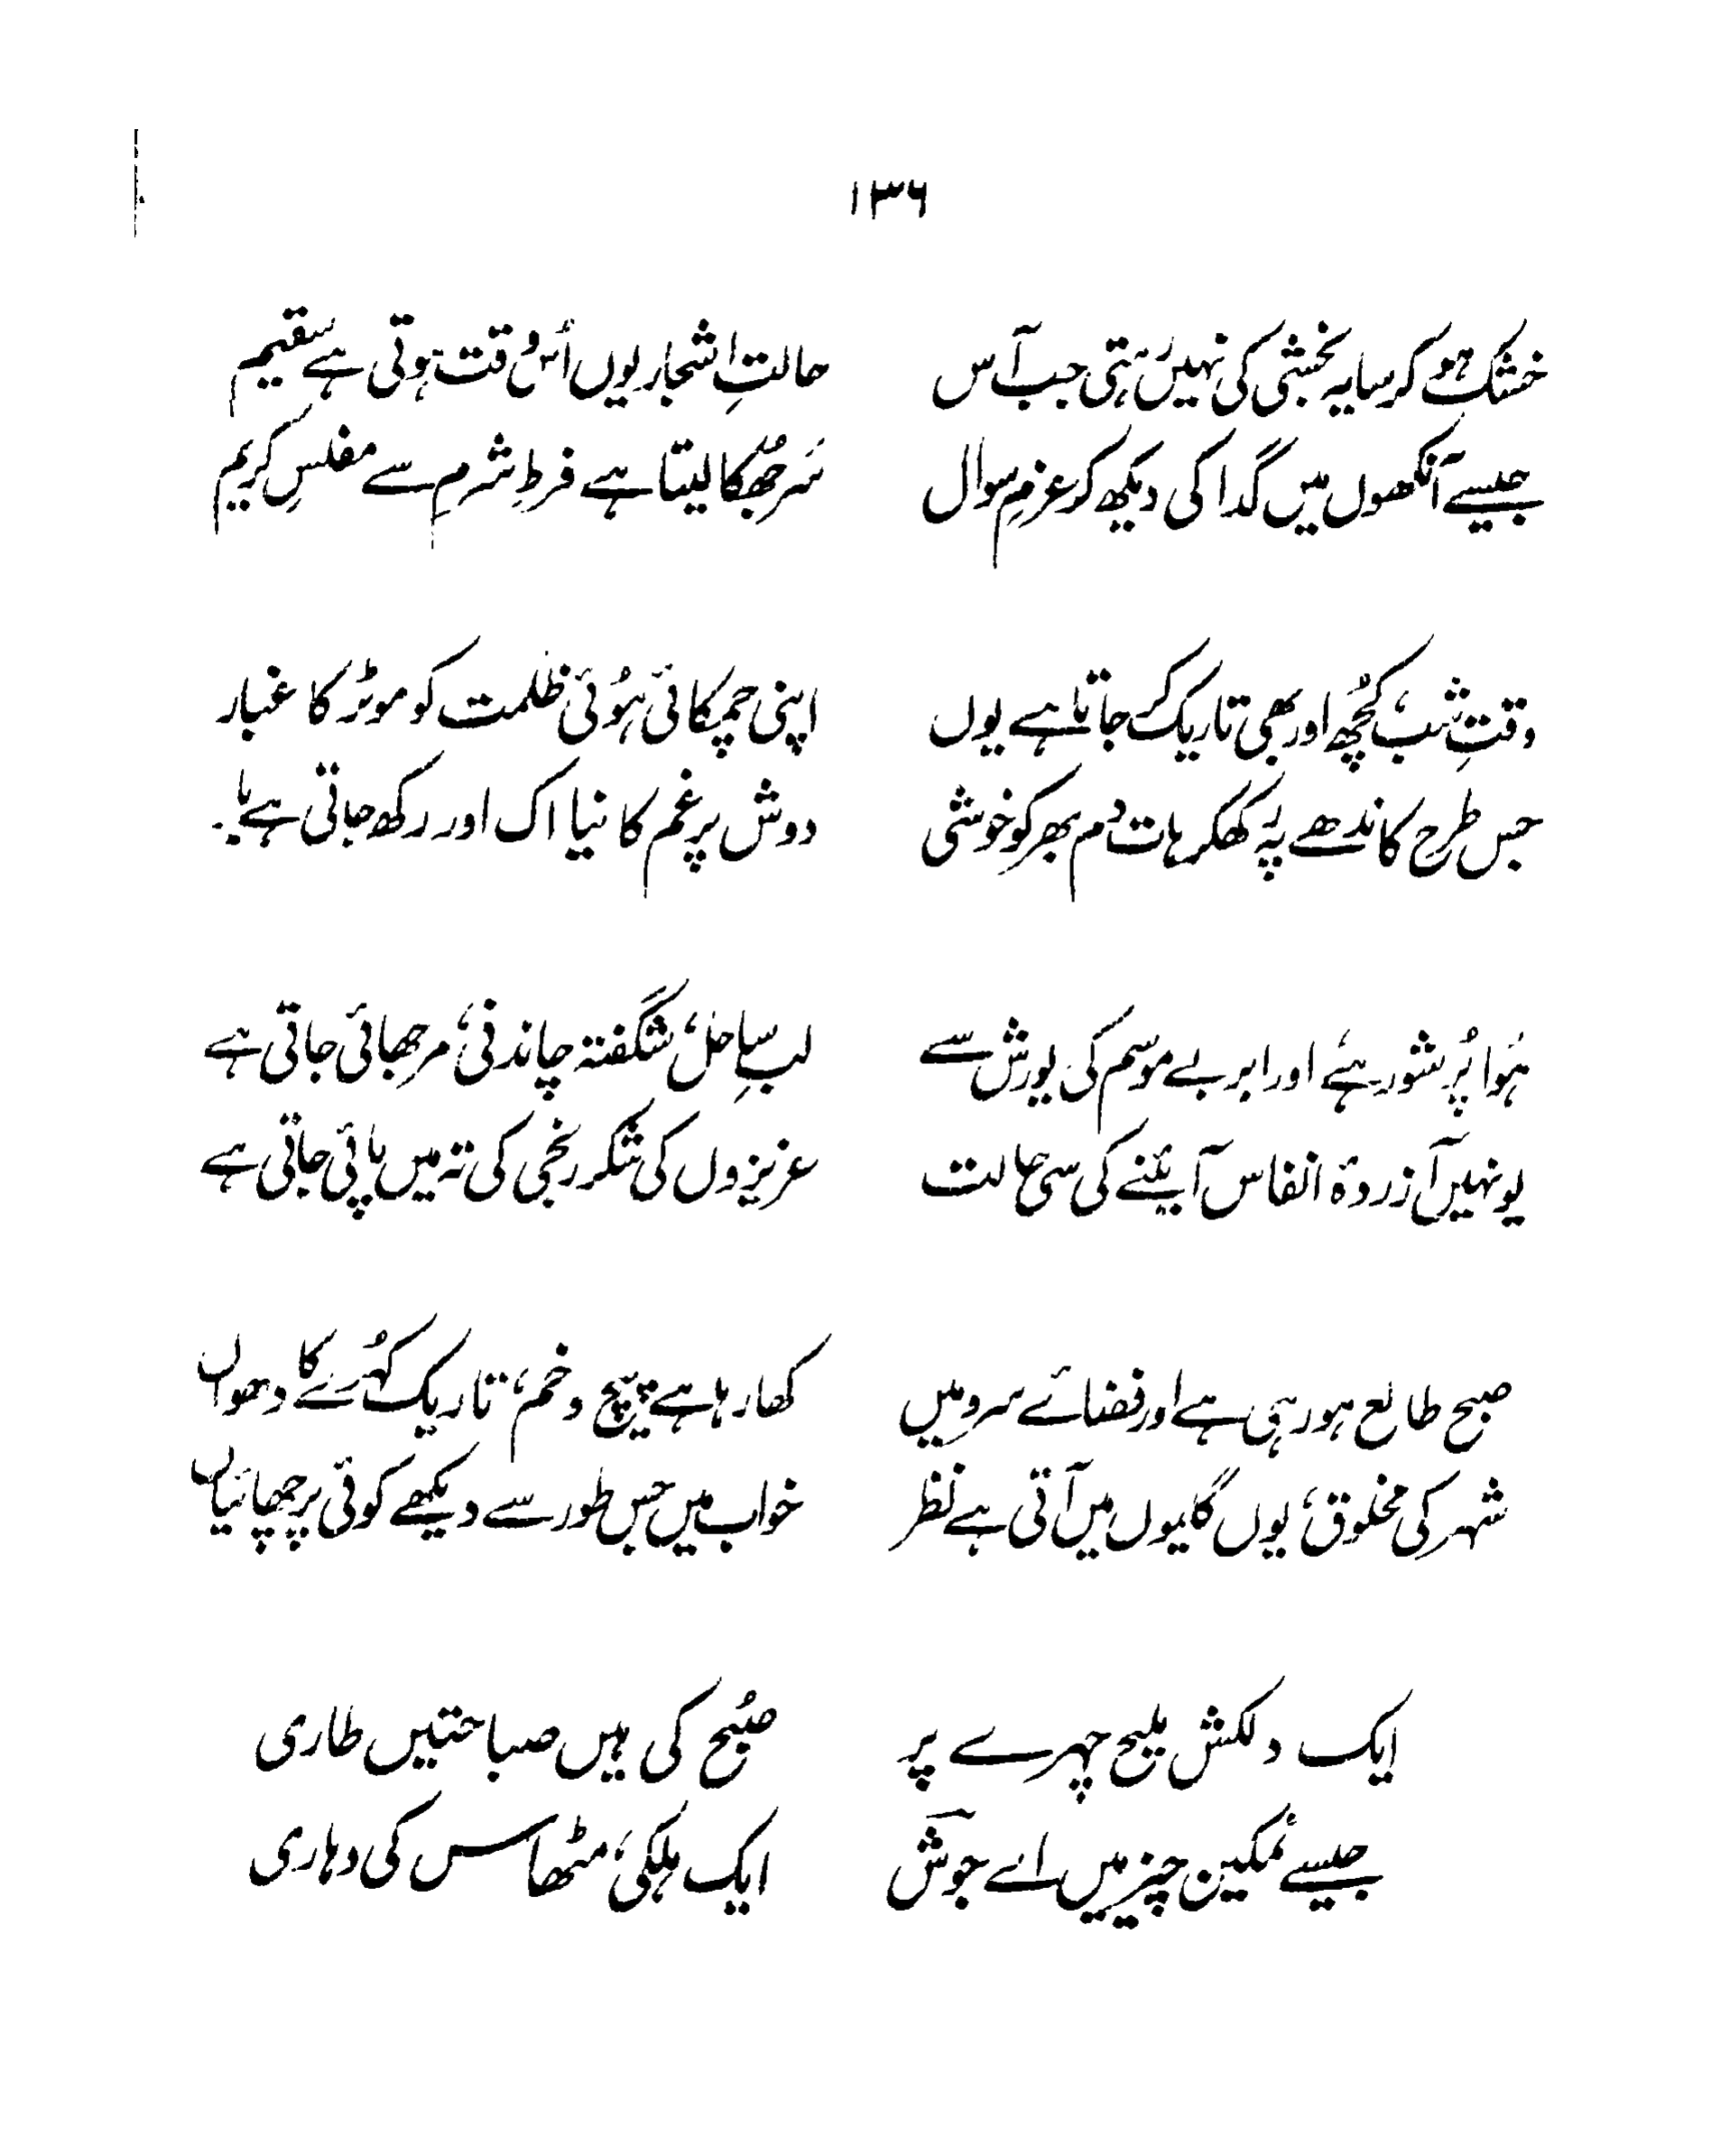 ۱۳۶
خشک ہو کر سایہ بخشی کی نہیں رہتی جب آس حالتِ اشجار یوں اُس وقت ہوتی ہے سقیم
جیسے آنکھوں میں گدا کی دیکھ کر عزمِ سوال سَر جھُکا لیتا ہے فرطِ شرم سے مفلسِ کریم
وقتِ شب، کُچھ اور بھی تاریک کر جاتا ہے یوں اپنی چمکائی ہُوئی ظلمت کو موٹر کا غبار
جس طرح کاندھے پہ رکھکر ہات دم بھر کو خوشی دوش پر غم کا نیا اک اور رکھ جاتی ہے بار
ہَوا پُر شور ہے، اور ابر بے موسم کی یورش سے لبِ ساحل، شگفتہ چاندنی، مرجھائی جاتی ہے
یونہیں آزردۂ انفاس آئینے کی سی حالت عزیزوں کی شکر رنجی کی تہ میں پائی جاتی ہے
صبح طالع ہو رہی ہے اور فضائے سرد میں کھا رہا ہے پیچ و خم، تاریک کُہرے کا دھواں
شہر کی مخلوق، یوں گلیوں میں آتی ہے نظر خواب میں جس طور سے دیکھے کوئی پرچھائیاں
ایک دلکش ملیح چہرے پر صُبح کی ہیں صباحتیں طاری
جیسے نمکین چیز میں اے جوش ایک ہلکی، مٹھاس کی دہاری